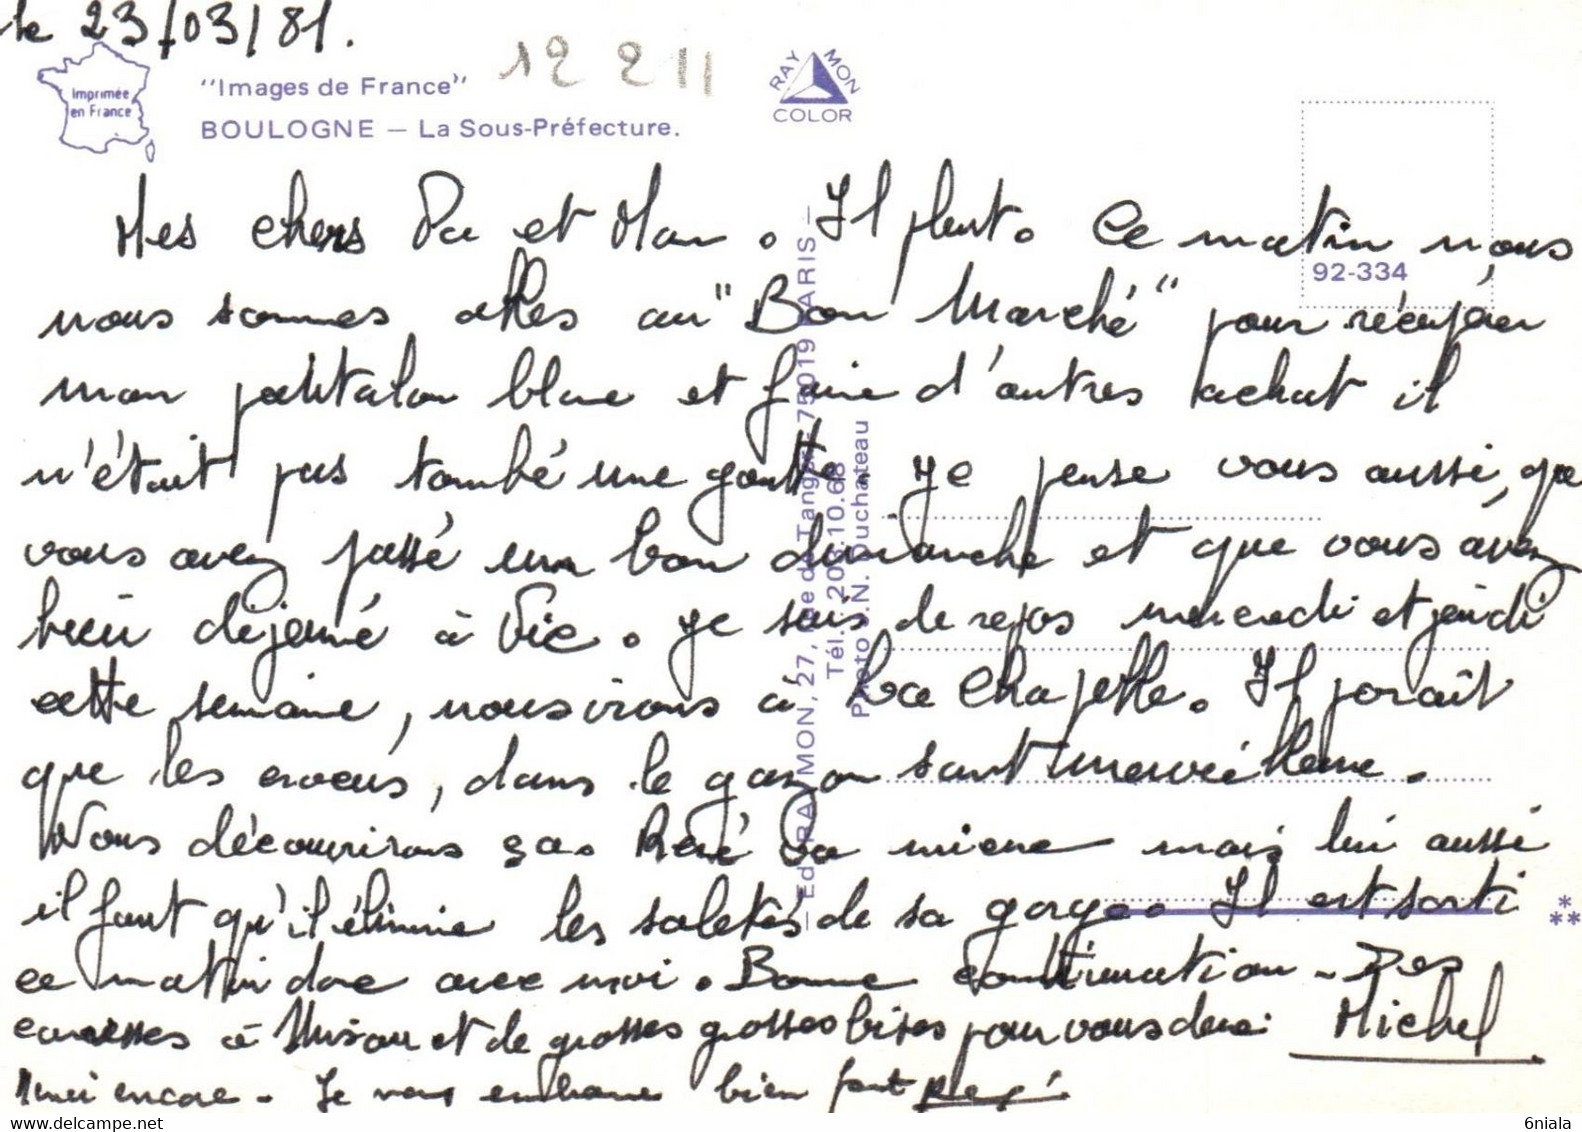 le 23/03/81.
12 2 11
Imprimée
en France
"Images de France"
BOULOGNE — La Sous-Préfecture.
RAYMON
COLOR
92-334
Mes chers Pa et Man. Il pleut. Ce matin nous
nous sommes allés au "Bon Marché" pour récupérer
mon pantalon blanc et faire d'autres achat il
n'était pas tombé une goutte. Je pense vous aussi, que
vous avez passé un bon dimanche et que vous avez
bien déjeuné à Vic. Je suis de repos mercredi et jeudi
cette semaine, nous irons à La Chapelle. Il parait
que les crocus, dans le gazon sont merveilleux.
Nous découvrirons ça. René va mieux mais lui aussi
il faut qu'il élimine les saletés de sa gorge. Il est sorti
ce matin donc avec moi. Bonne continuation - Des
caresses à et de grosses grosses bises pour vous deux. Michel
Merci encore - Je vous embrasse bien fort René.
— Ed. RAYMON, 27, rue de Tanger 75019 PARIS —
Tél. : 206.10.68
Photo J.N. Duchateau
*
**
6niala